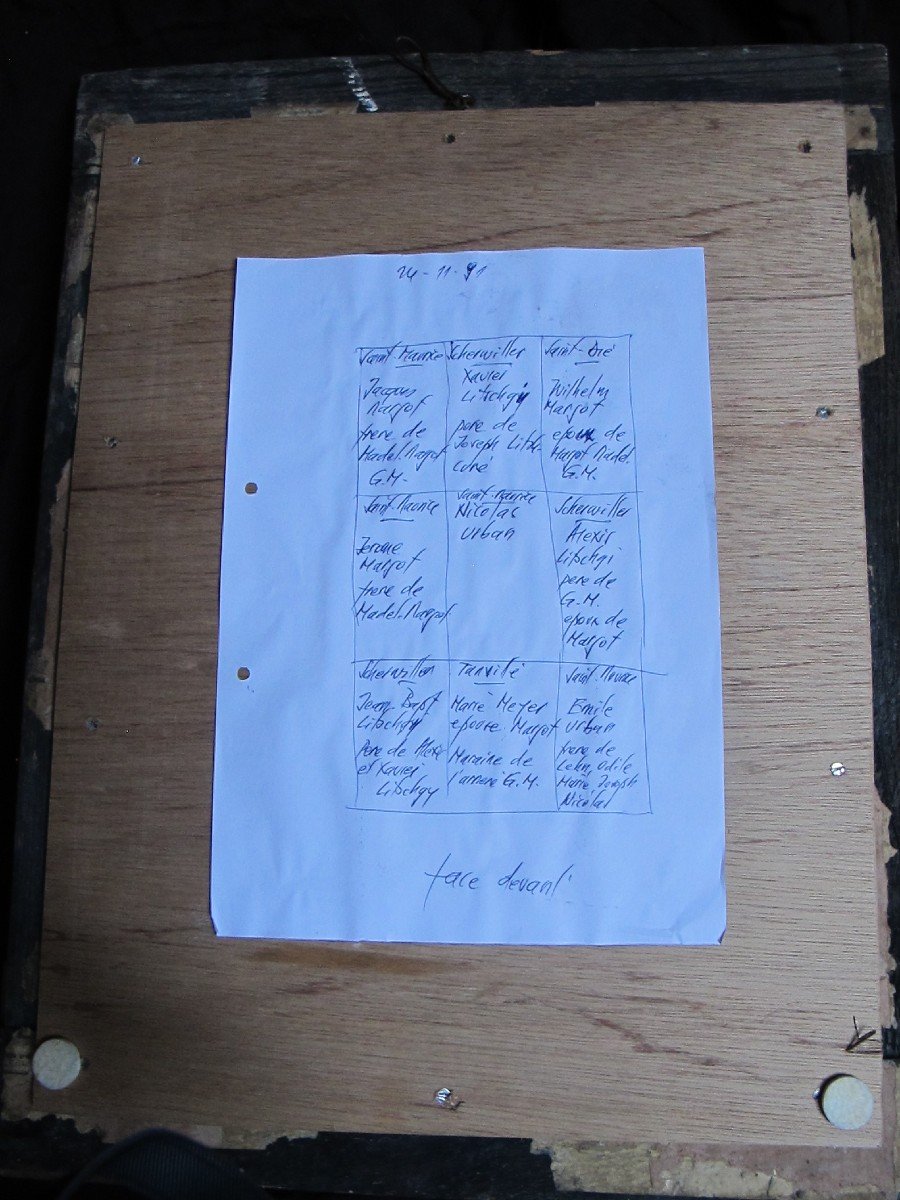 24-11-91
Saint-Maurice
Jacques
Margot
frere de
Madel. Margot
G.M.
Scherwiller
Xavier
Litschgy
pere de
Joseph Litsch-
curé
Saint-Dié
Wilhelm
Margot
epoux de
Margot Madel.
G.M.
Saint-Maurice
Jerome
Margot
frere de
Madel. Margot
Saint-Maurice
Nicolas
Urban
Scherwiller
Alexis
Litschgi
pere de
G.M.
epoux de
Margot
Scherwiller
Jean-Bapt
Litschgy
Pere de Alexis
et Xavier
Litschgy
Tanvillé
Marie Meyer
epouse Margot
Maraine de
l'arriere G.M.
Saint-Maurice
Emile
Urban
frere de
Odile
Marie, Joseph
Nicolas
face devant